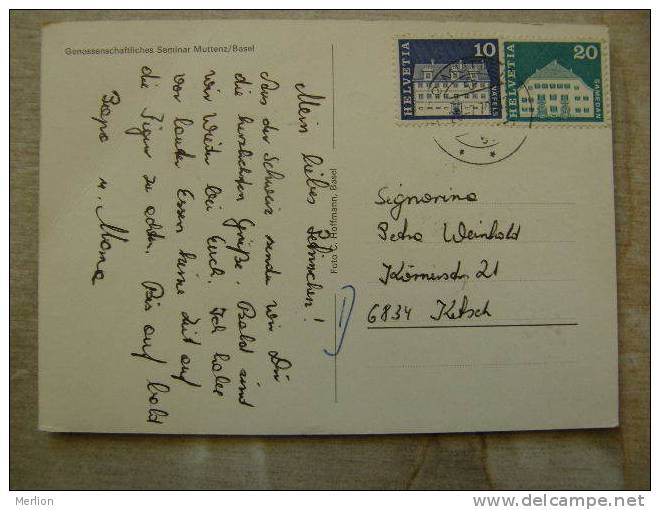 Genossenschaftliches Seminar Muttenz/Basel
Mein liebes
Aus der Schweiz senden wir Dir
die herzlichsten Grüße. Bald sind
wir wieder bei Euch. Ich habe
vor lauter Essen keine Zeit auf
die Figur zu achten. Bis auf bald
Papa u. Mama
Foto C. Hoffmann, Basel
HELVETIA
10
NÄFELS
HELVETIA
20
SAMEDAN
Signorina
Petra Weinhold
Körnerstr. 21
6834 Ketsch
Merlion
http://www.delcampe.net